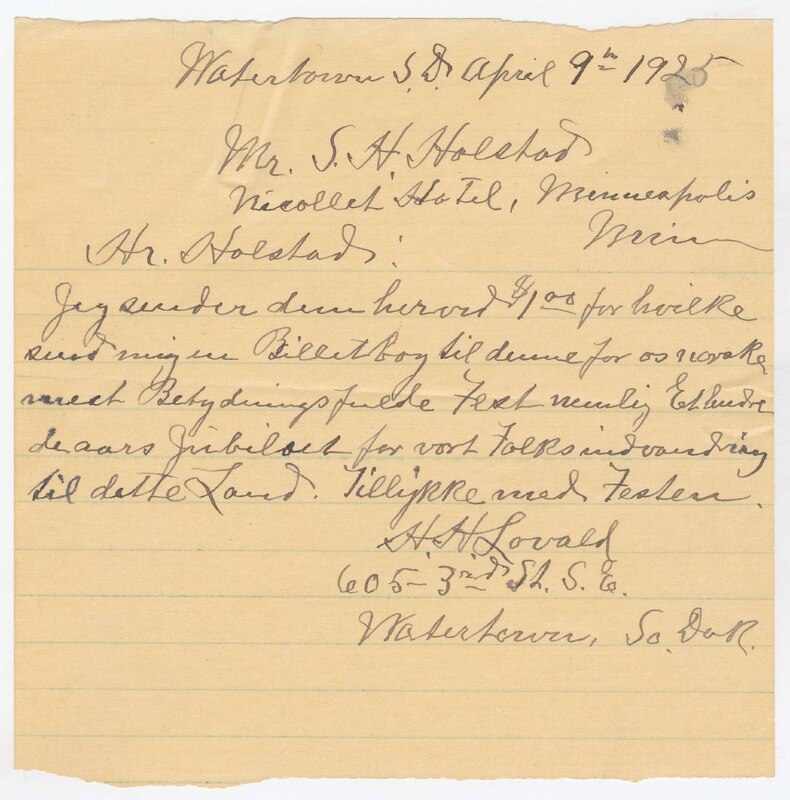 Watertown S.D. April 9th 1925
Mr. S. H. Holstad
Nicollet Hotel, Minneapolis
Minn
Hr. Holstad:
Jeg sender dem herved $1.00 for hvilke
send mig en Billet bog til denne for os norske
mest Betydningsfulde Fest nemlig Et hundre
de aars Jubilæet for vort Folks indvandring
til dette Land. Tillykke med Festen.
H. H Lovald
605 - 3rd St. S. E.
Watertown, So. Dak.